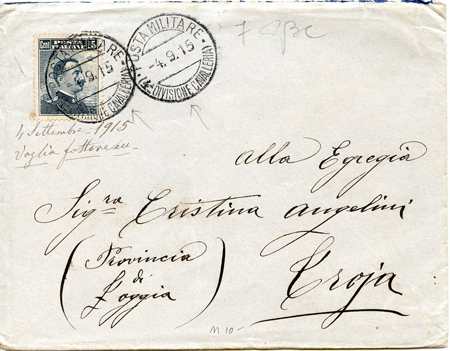 7 
Cent. POSTE ITALIANE 15
POSTA MILITARE
-4.9.15
(4ª DIVISIONE CAVALLERIA)
POSTA MILITARE
-4.9.15
(4ª DIVISIONE CAVALLERIA)
4 Settembre 1915
Voglia
Alla Egregia
Sigra Cristina Angelini
(Provincia
di
Foggia)
Troja
M 10-